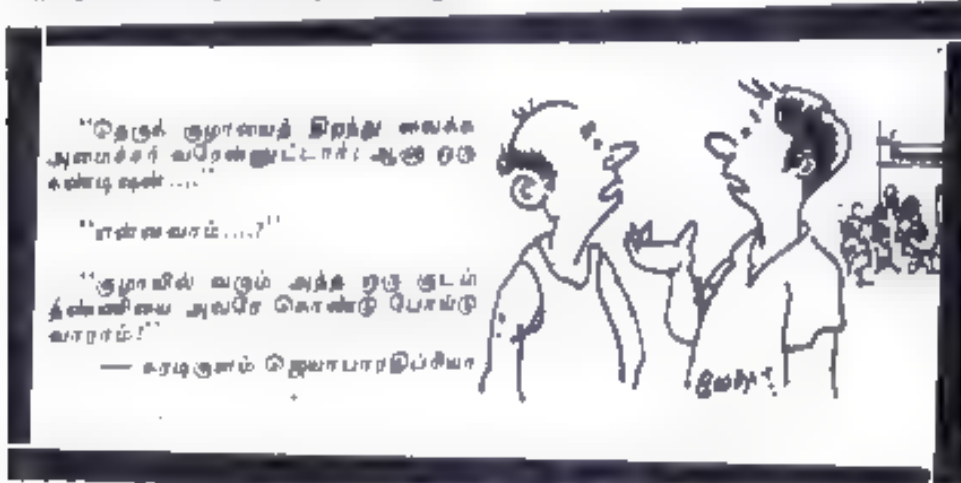 "தெருக் குழாயைத் திறந்து வைக்க
அமைச்சர் வரேன்னுட்டார்; ஆனா ஒரு
கண்டிஷன்...."
"என்னவாம்....?"
"குழாயில் வரும் அந்த ஒரு குடம்
தண்ணியை அவரே கொண்டு போய்டு
வாராம்!"
— கரடிகுளம் ஜெயாபாரதிப்ரியா